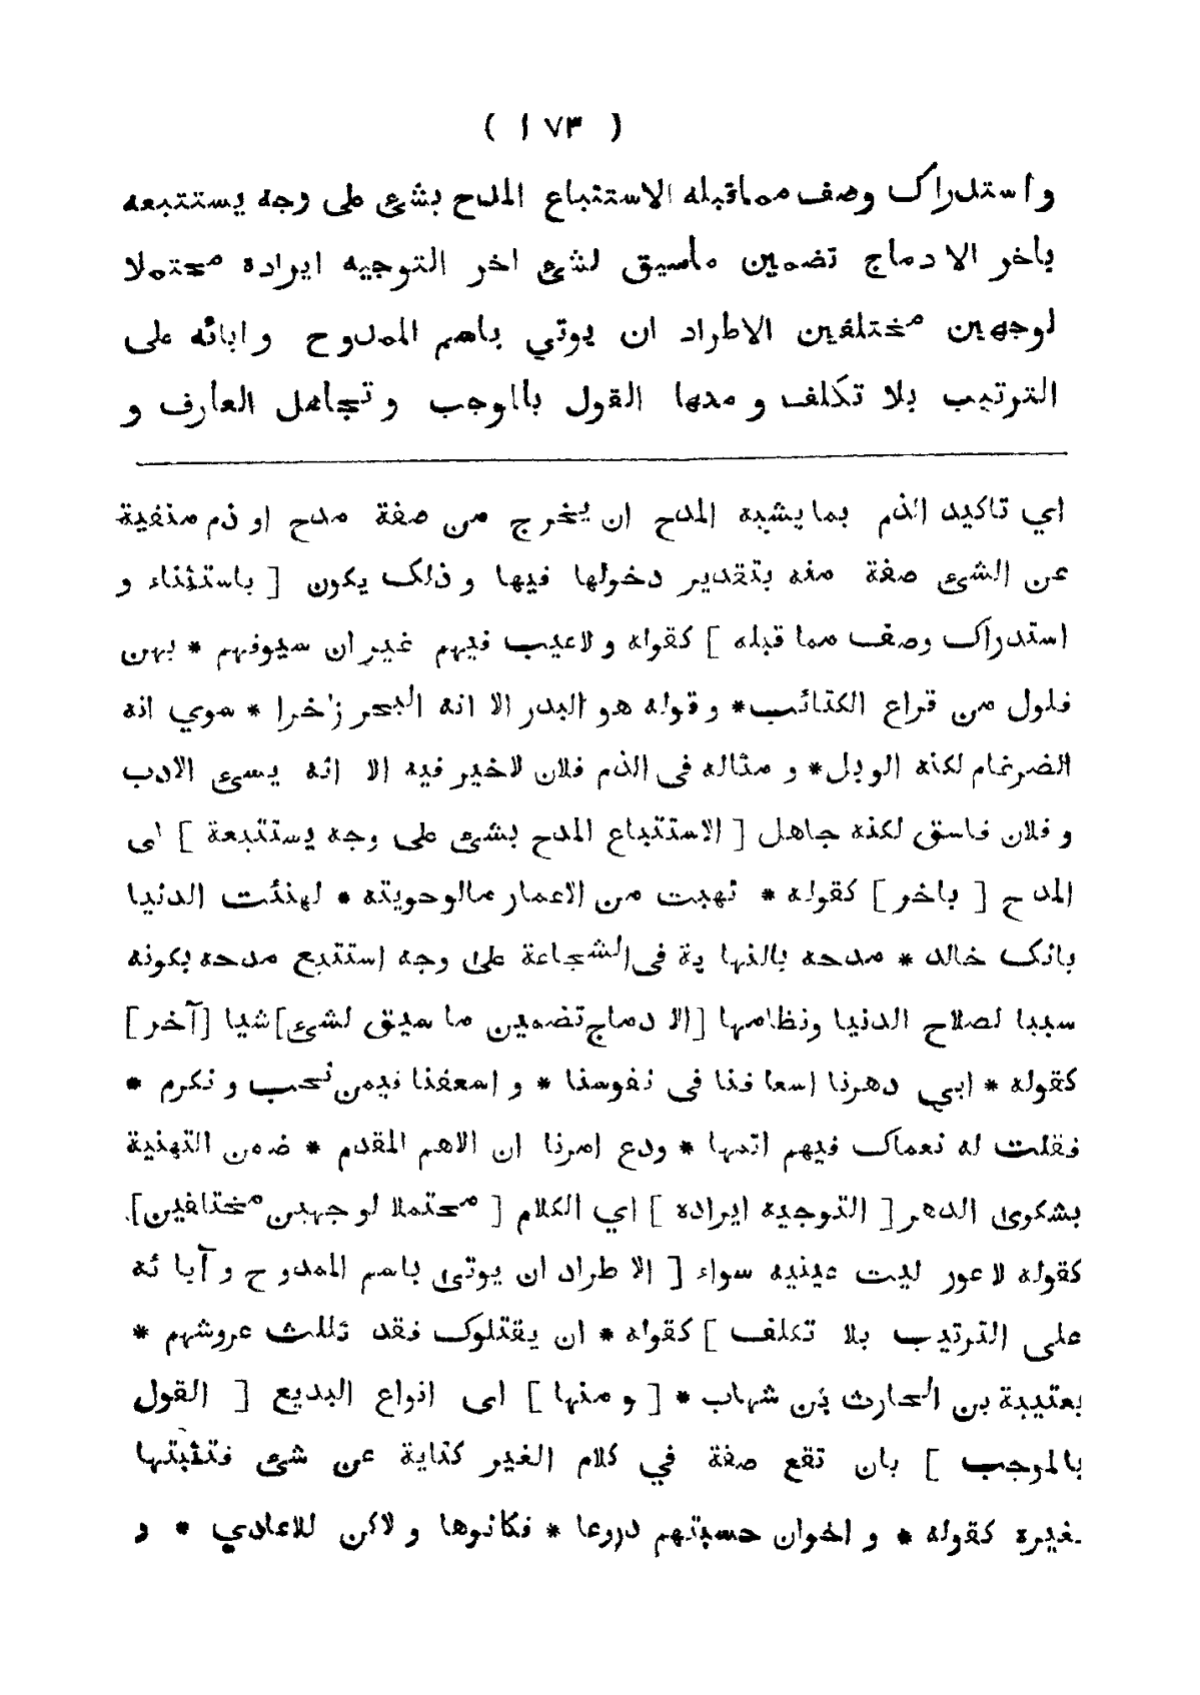 ( ١٧٣ )
واستدراک وصف مماقبله الاستتباع المدح بشئ على وجه يستتبعه
بأخر الادماج تضمين ماسيق لشئ اخر التوجيه ايراده محتملا
لوجهين مختلفين الاطراد ان يوتي باسم الممدوح وابائه على
الترتيب بلا تكلف و منها القول بالموجب و تجاهل العارف و
اي تاكيد الذم بما يشبه المدح ان يخرج من صفة مدح او ذم منفية
عن الشئ صفة منه بتقدير دخولها فيها و ذلک يكون [ باستثناء و
استدراک وصف مما قبله ] كقوله و لاعيب فيهم غير ان سيوفهم * بهن
فلول من قراع الكتائب* و قوله هو البدر الا انه البحر زاخرا * سوي انه
الضرغام لكنه الوبل* و مثاله فى الذم فلان لاخير فيه الا انه يسئ الادب
و فلان فاسق لكنه جاهل [ الاستتباع المدح بشئ على وجه يستتبعة ] اى
المدح [ باخر ] كقوله * نهبت من الاعمار مالوحويته * لهنئت الدنيا
بانک خالد * مدحه بالنهاية فى الشجاعة على وجه استتبع مدحه بكونه
سببا لصلاح الدنيا ونظامها [الا دماج تضمين ما سيق لشئ] شيا [آخر]
كقوله * ابي دهرنا اسعا فنا فى نفوسنا * و اسعفنا فيمن نحب و نكرم *
فقلت له نعماک فيهم اتمها * ودع امرنا ان الاهم المقدم * ضمن التهنية
بشكوى الدهر [ التوجيه ايراده ] اي الكلام [ محتملا لوجهين مختلفين ]
كقوله لاعور ليت عينيه سواء [ الا طراد ان يوتى باسم الممدوح و آبا ئه
على الترتيب بلا تكلف ] كقوله * ان يقتلوک فقد ثللث عروشهم *
بعتيبة بن الحارث بن شهاب * [ و منها ] اى انواع البديع [ القول
بالموجب ] بان تقع صفة في كلام الغير كناية عن شئ فتثبتها
لغيره كقوله * و اخوان حسبتهم دروعا * فكانوها و لاكن للاعادي * و